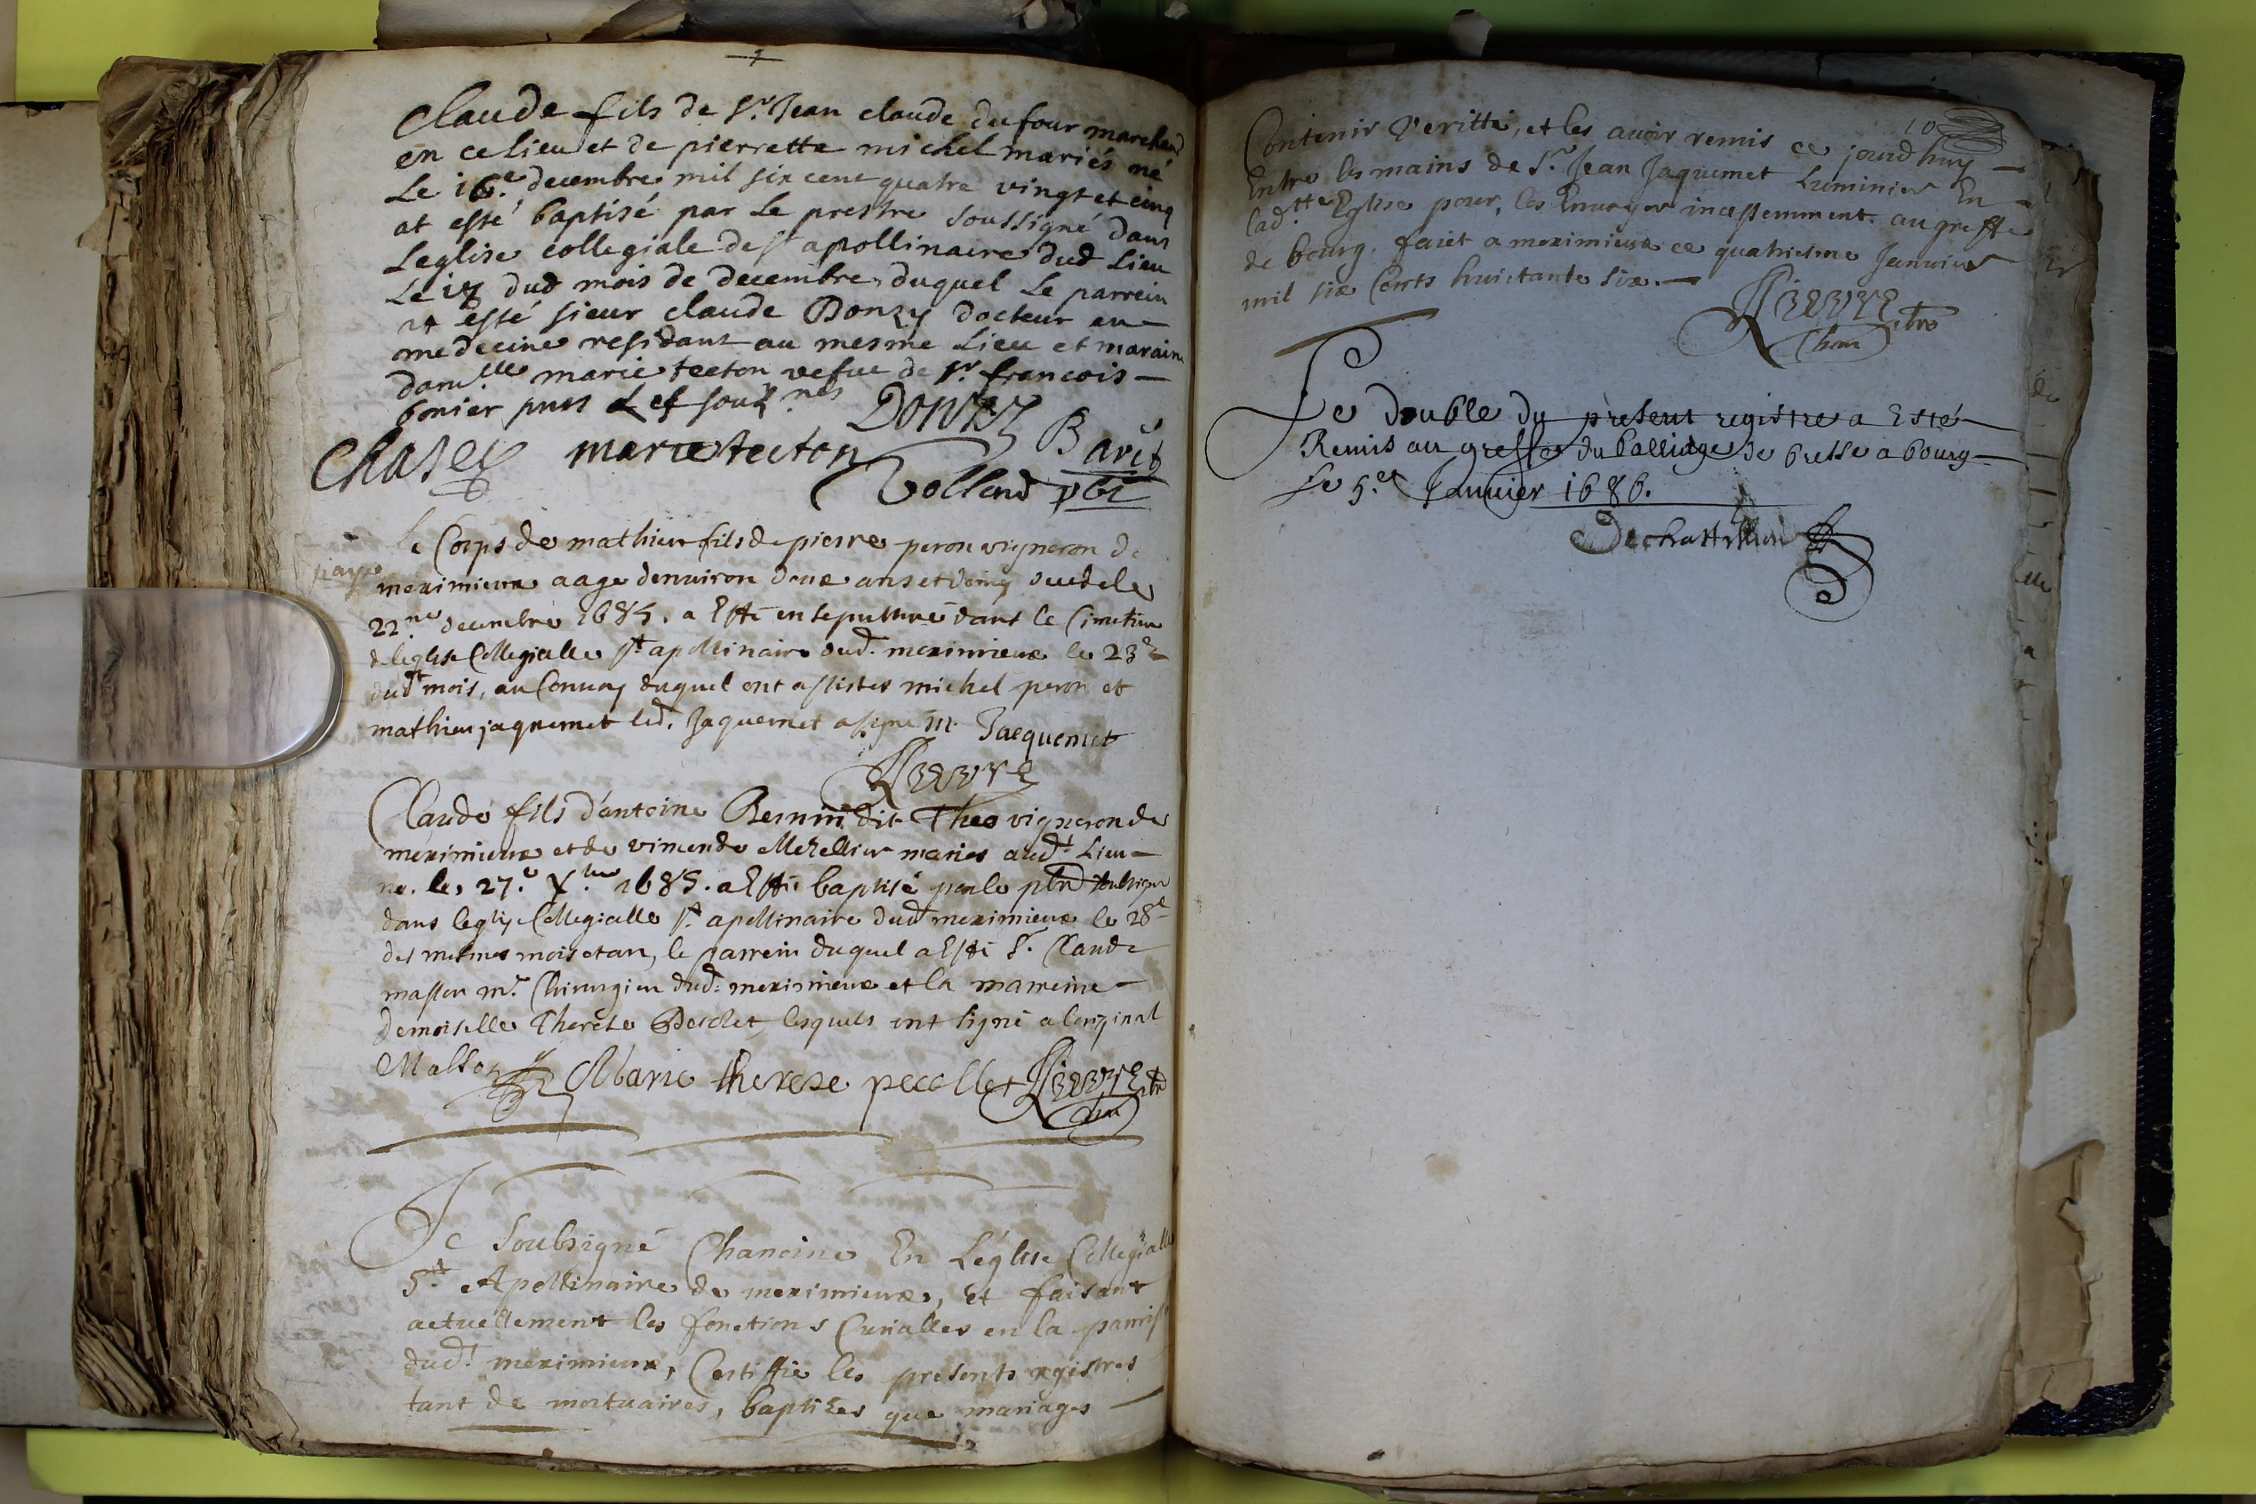 Claude fils de Sr. Jean claude dufour marchand
en ce lieu et de pierrette michel mariés né
Le 16.e decembre mil six cent quatre vingt et cinq
at esté baptisé par Le prestre soussigné dans
Leglise collegiale de st apollinaire dud Lieu
Le 17 dud mois de decembre, duquel Le parrein
at esté sieur claude Donzy Docteur en
medecine residant au mesme Lieu et maraine
dam.lle marie tecton vefue de Sr. francois
bonier
DONZY
Chasey marie tecton Baret
Volland pbr
le Corps de mathieu fils de pierre peron vigneron de
meximieux aage denuiron deux ans et demy decedé le
22.me decembre 1685. a Esté ensepulturé dans le Cimetiere
de leglise Collegialle St apollinaire dud. meximieux le 23e
dudt mois, au Conuoy duquel ont assistes michel peron et
mathieu jaquemet led. Jaquemet a signé M Jacquemet
Claude fils d'antoine Bernin dit Theo vigneron de
meximieux et de vimende Mezellier maries audt. Lieu
ne. le, 27.e Xbre 1685. a Esté baptisé par le pbre soubsigne
dans leglise Collegialle St. apollinaire dud meximieux le 28e
des mesmes mois et an, le parrein duquel a Esté Sr. Claude
masson mr. Chirurgien dud. meximieux et la marreine
demoiselle Therese Pecolet, lesquels ont signé a loriginal
Masson Marie therese pecollet
Je Soubsigné Chanoine En L'église Collegialle
St. Apollinaire de meximieux, et faisant
actuellement les fonctions Curialles en la parroisse
dudt. meximieux, Certiffie les presents registres
tant de mortuaires, baptizes que mariages
10
Contenir Veritté, et les auoir remis ce jourd'huy
Entre les mains de Sr. Jean Jaquemet Luminier En
lad.tte Eglise pour, les Enuoyer incessemment au greffe
de bourg. faict a meximieux ce quatriesme Januier
mil six Cents huictante six.
Le double du present registre a Esté
Remis au greffe du balliage de bresse a bourg
Le 5.e Januier 1686.
Dechattillon